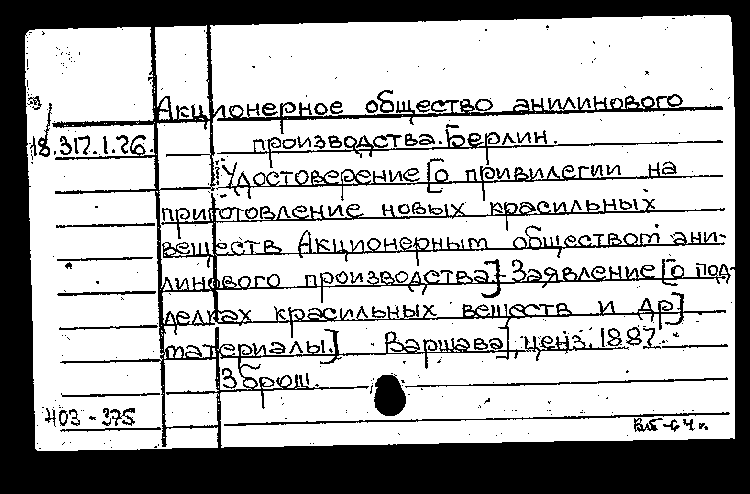 Акционерное общество анилинового
18.317.1.76. производства. Берлин.
Удостоверение [о привилегии на
приготовление новых красильных
веществ Акционерным обществом ани-
линового производства]. Заявление [о под-
делках красильных веществ и др]
материалы.] Варшава], ценз. 1887.
3 брош.
403 - 375